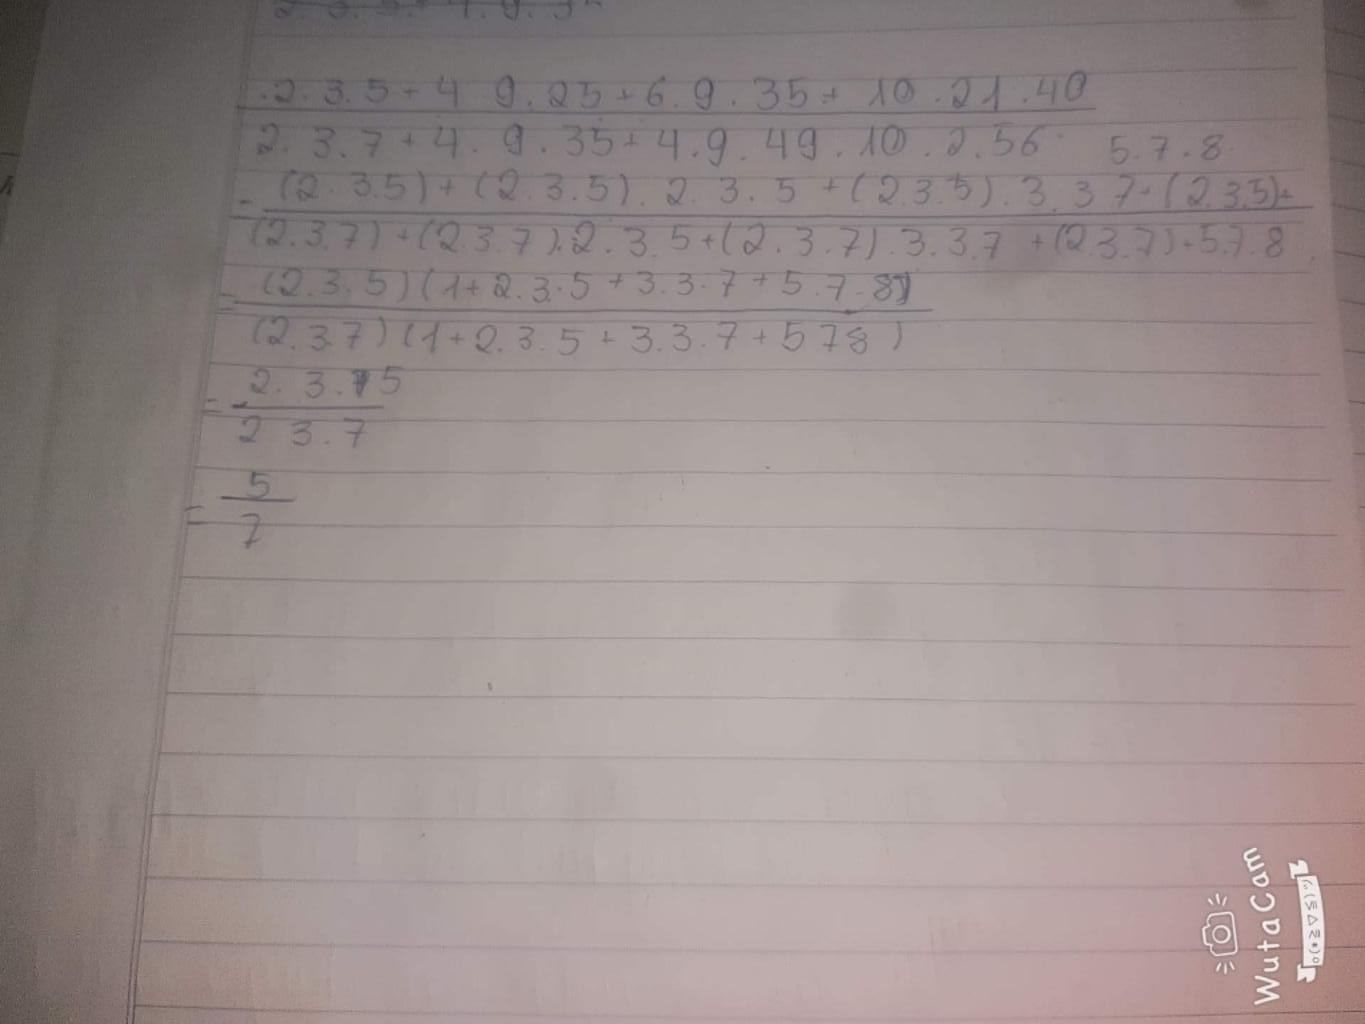 .2.3.5+4 9.25+6.9.35+10.21.40
2.3.7+4.9.35+4.9.49.10.2.56 5.7.8
=(2.3.5)+(2.3.5).2.3.5+(2.3.5).3.3.7+(2.3.5)+
(2.3.7)+(2.3.7).2.3.5+(2.3.7).3.3.7+(2.3.7).5.7.8
=(2.3.5)(1+2.3.5+3.3.7+5.7.8)
(2.3.7)(1+2.3.5+3.3.7+5 7 8)
=2.3.5
2 3.7
=5
7
WutaCam